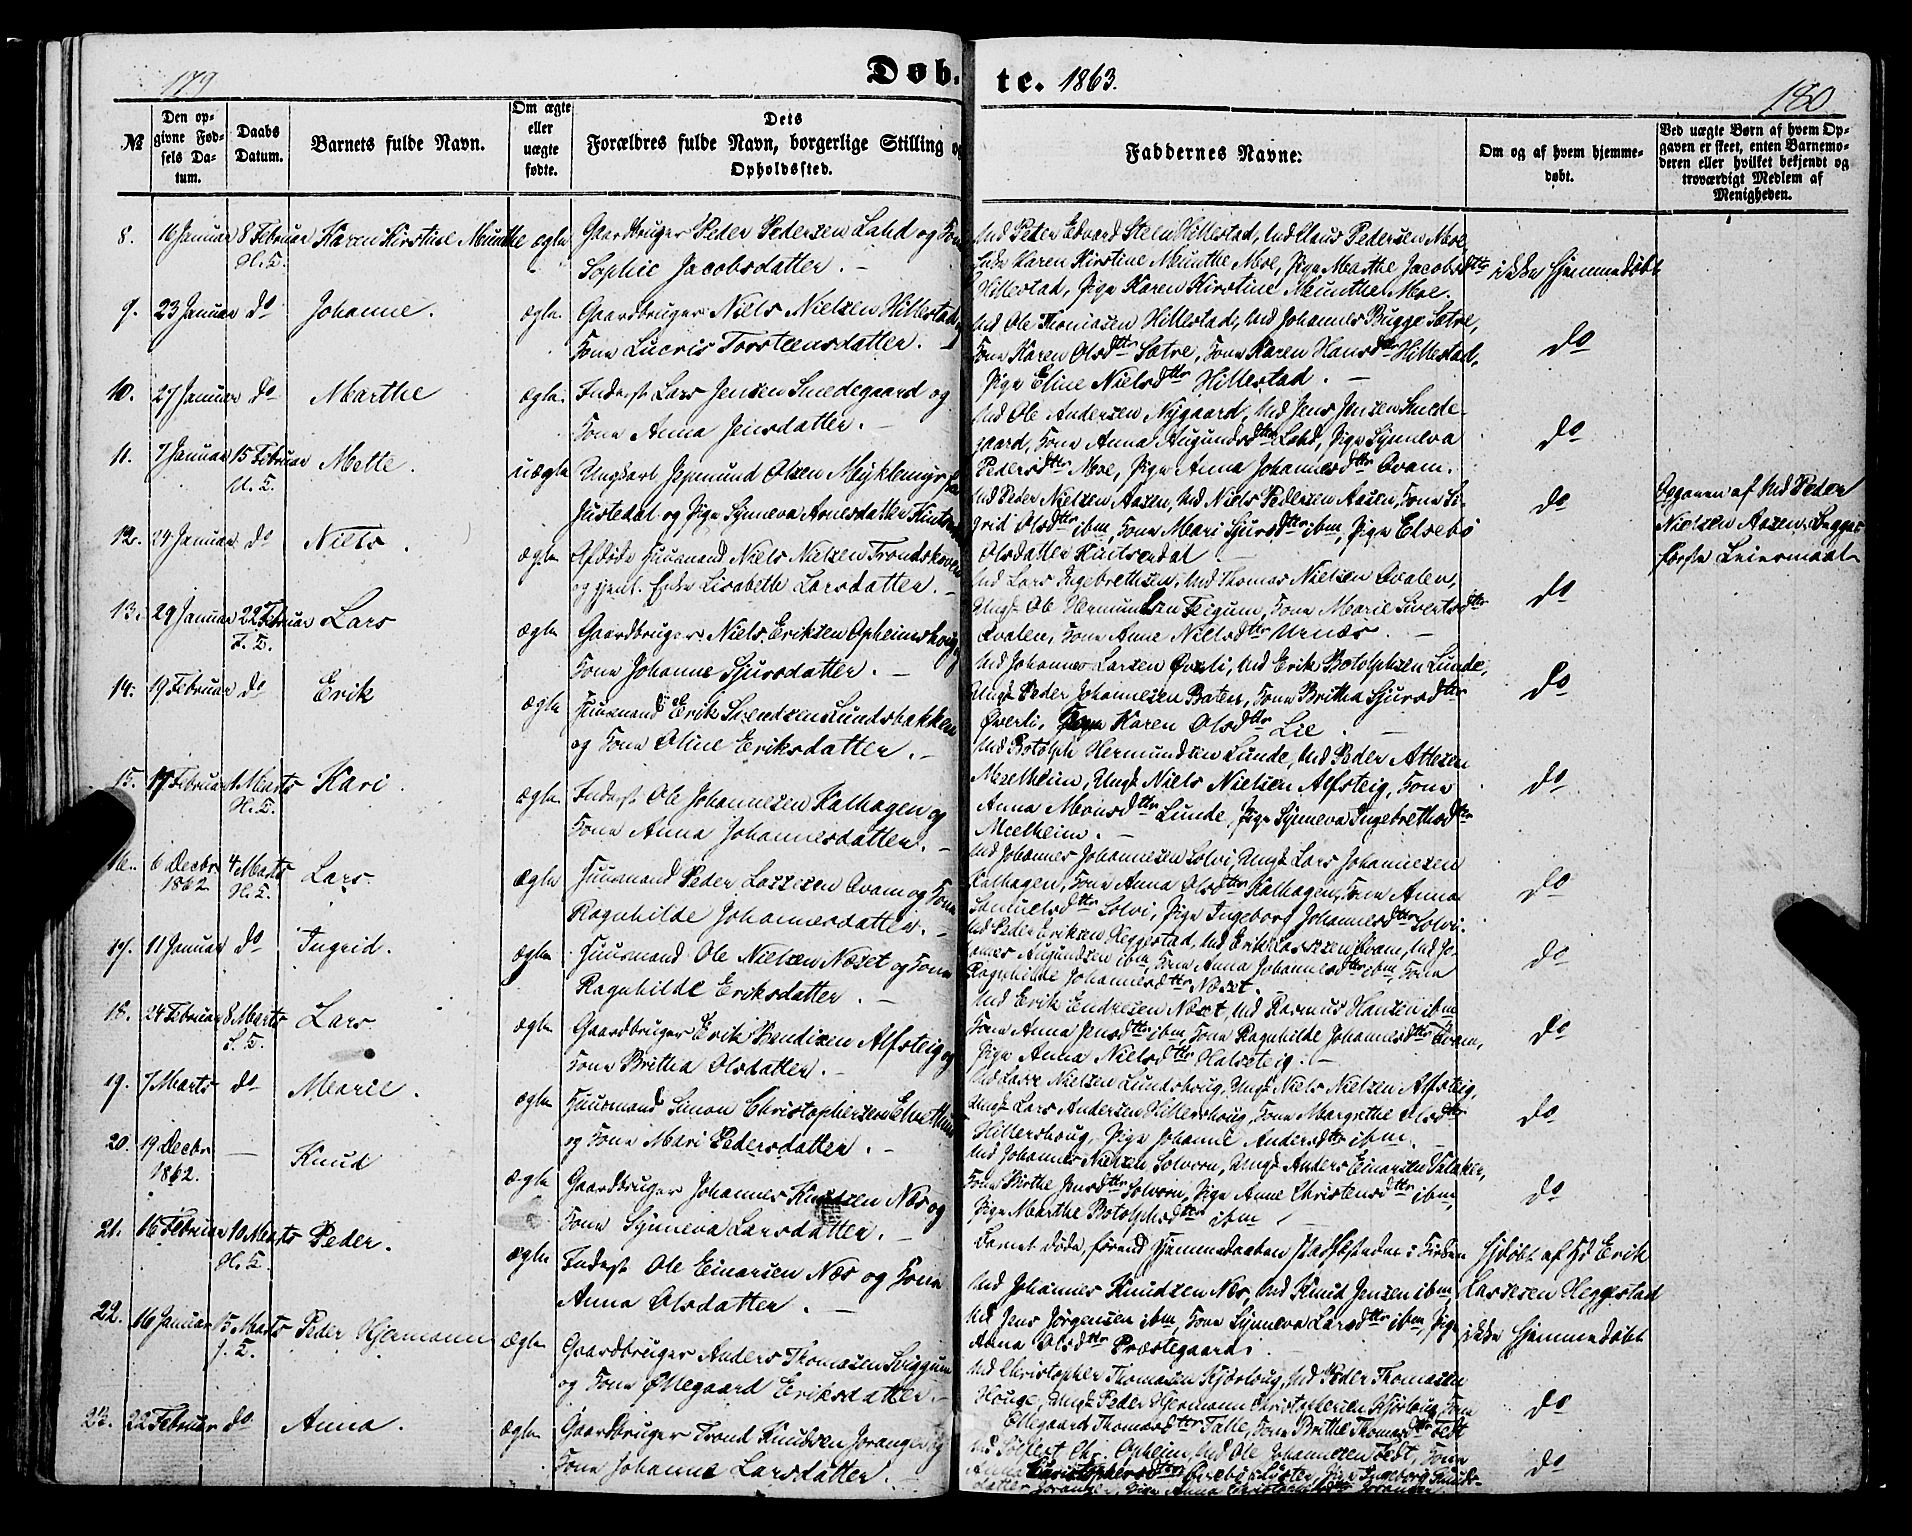 179
Døb-
te. 1863.
180
№
Den op-
givne Fød-
sels Da-
tum.
Daabs
Datum.
Barnets fulde Navn.
Om ægte
eller
uægte
fødte.
Dets
Forældres fulde Navn, borgerlige Stilling og
Opholdssted.
Faddernes Navne:
Om og af hvem hjemme-
døbt.
Ved uægte Børn af hvem Op-
gaven er skeet, enten Barnemo-
deren eller hvilket bekjendt og
troværdigt Medlem af
Menigheden.
8. 16 Januar 8 Februar Karen Kirstine Munthe ægte Gaardbruger Peder Pedersen Lahd og Kone
H.E.
Sophie Jacobsdatter. -
Ved Peder Edvard Steen Hillestad, Ved Claus Pedersen Moe
Enke Karen Kirstine Munthe Moe, Pige Marthe Jacobsdttr
Hillestad, Pige Karen Kirstine Munthe Moe.
ikke hjemmedøbt
9. 23 Januar do Johanne. ægte. Gaardbruger Niels Nielsen Hillestad
Kone Lucris Torsteensdatter. -
Ved Ole Thomasen Hillestad, Ved Johannes Bugge Sætre,
Kone Karen Olsdttr Sætre, Kone Karen Hansdttr Hillestad,
Pige Eline Nielsdttr Hillestad. -
do
10. 27 Januar do Marthe ægte. Inderst Lars Jensen Smedegaard og
Kone Anna Jensdatter. -
Ved Ole Andersen Nygaard, Ved Jens Jensen Smede-
gaard, Kone Anna Augundsdttr Lahd, Pige Synneva
Pedersdttr Moe, Pige Anna Johannesdttr Qvam.
do
11. 7 Januar 15 Februar Mette. uægte Ungkarl Jegmund Olsen Myklemyr fra
Justedal og Pige Synneva Arnesdatter
Ved Peder Nielsen Aasen, Ved Niels Pedersen Aasen, Kone Si-
grid Olsdttr ibm, Kone Mari Sjursdttr ibm, Pige Elsebe
Olsdatter
do
Opgaven af Ved Peder
Nielsen Aasen. Begges
første Leiermaal
12. 24 Januar do Niels. ægte Afdøde Huusmand Niels Nielsen Trondskoven
og Enke Lisabeth Larsdatter. -
Ved Lars Ingebrethsen, Ved Thomas Nielsen Qvalen,
Ungk Ole Hermundsen Feigum, Kone Marie Sivertsdttr
Qvalen, Kone Anne Nielsdttr Urnæs. -
do
13. 29 Januar 22 Februar Lars ægte Gaardbruger Niels Eriksen Opheimshoug og
F.E.
Kone Johanne Sjursdatter. -
Ved Johannes Larsen Øverli, Ved Erik Botolphsen Lunde,
Ungk Peder Johannesen Baten, Kone Brithe Sjursdttr
Øverli, Pige Karen Olsdttr Lie. -
do
14. 19 Februar do Erik ægte Huusmand Erik Svendsen Lundsbakken
og Kone Oline Eriksdatter. -
Ved Botolph Hermundsen Lunde, Ved Peder Attesen
Mælheim, Ungk Niels Nielsen Alfsteig, Kone
Anna Monsdttr Lunde, Pige Synneva Ingebrethsdttr
Mælheim. -
do
15. 17 Februar 1 Marts Kari. ægte Inderst Ole Johannesen Kalhagen og
H.E.
Kone Anna Johannesdatter. -
Ved Johannes Johannesen Solvi, Ungk Lars Johannesen
Kalhagen, Kone Anna Olsdttr Kalhagen, Kone Anna
Samuelsdttr Solvi, Pige Ingeborg Johannesdttr Solvi.
do
16. 6 Decbr 4 Marts Lars. ægte Huusmand Peder Lassesen Qvam og Kone
1862. H.E.
Ragnhilde Johannesdatter. -
Ved Peder Eriksen Heggestad, Ved Erik Lassesen Qvam, Ved Jo-
hannes Augundsen ibm, Kone Anna Johannesdttr ibm, Kone
Ragnhilde Johannesdttr Næset.
do
17. 11 Januar do Ingrid. ægte. Huusmand Ole Nielsen Næset og Kone
Ragnhilde Eriksdatter. -
Ved Erik Endresen Næset, Ved Rasmus Hansen ibm
Kone Anna Jensdttr ibm, Kone Ragnhilde Johannesdttr Qvam,
Pige Anna Nielsdttr Halsteig. -
do
18. 24 Februar 8 Marts Lars ægte Gaardbruger Erik Bendixen Alfsteig og
S.E.
Kone Brithe Olsdatter. -
Ved Lasse Nielsen Lundshoug, Ungk Niels Nielsen Alfsteig,
Ungk Lars Andersen Hillershoug, Kone Margrethe Olsdttr
Hillershoug, Pige Johanne Andersdttr ibm.
do
19. 7 Marts do Marie. ægte Huusmand Simon Christophersen
og Kone Mari Pedersdatter. -
Ved Johannes Nielsen Solvorn, Ungk Anders Einarsen Valaker,
Kone Birthe Jensdttr Solvorn, Pige Anne Christensdttr ibm,
Pige Marthe Botolphsdttr ibm -
do
20. 19 Decbr - Knud ægte Gaardbruger Johannes Knutzen Næs og
1862.
Kone Synneva Larsdatter. -
Barnet døde førend Hjemmedaaben stadfæstedes i Kirken
Hjdøbt af Kd Erik
Lassesen Heggestad
21. 16 Februar 10 Marts Peder. ægte Inderst Ole Einarsen Næs og Kone
H.E.
Anna Olsdatter. -
Ved Johannes Knudsen Næs, Ved Knud Jensen ibm,
Ved Jens Jørgensen ibm, Kone Synneva Larsdttr ibm, Pige
Anna Olsdttr Præstegaard.
ikke hjemmedøbt
22. 16 Januar 15 Marts Peder Hjermann ægte Gaardbruger Anders Thomasen Sviggum
J.E.
og Kone Øllegaard Eriksdatter. -
Ved Christopher Thomasen Kjørlaug, Ved Peder Thomasen
Houge, Ungk Peder Hjermann Christophersen Kjørlaug, Kone
Øllegaard Thomasdttr Talle, Kone Brithe Thomasdttr Fedt
do
23. 22 Februar do Anna. ægte. Gaardbruger Trond Knudsen Joranger og
Kone Johanne Larsdatter. -
Ved Syllfest Chr. Opheim, Ved Ole Johannesen Fedt, Kone
Anna Christophersdttr Lyster, Pige Ingeborg Knuds-
datter Joranger, Pige Anna
do